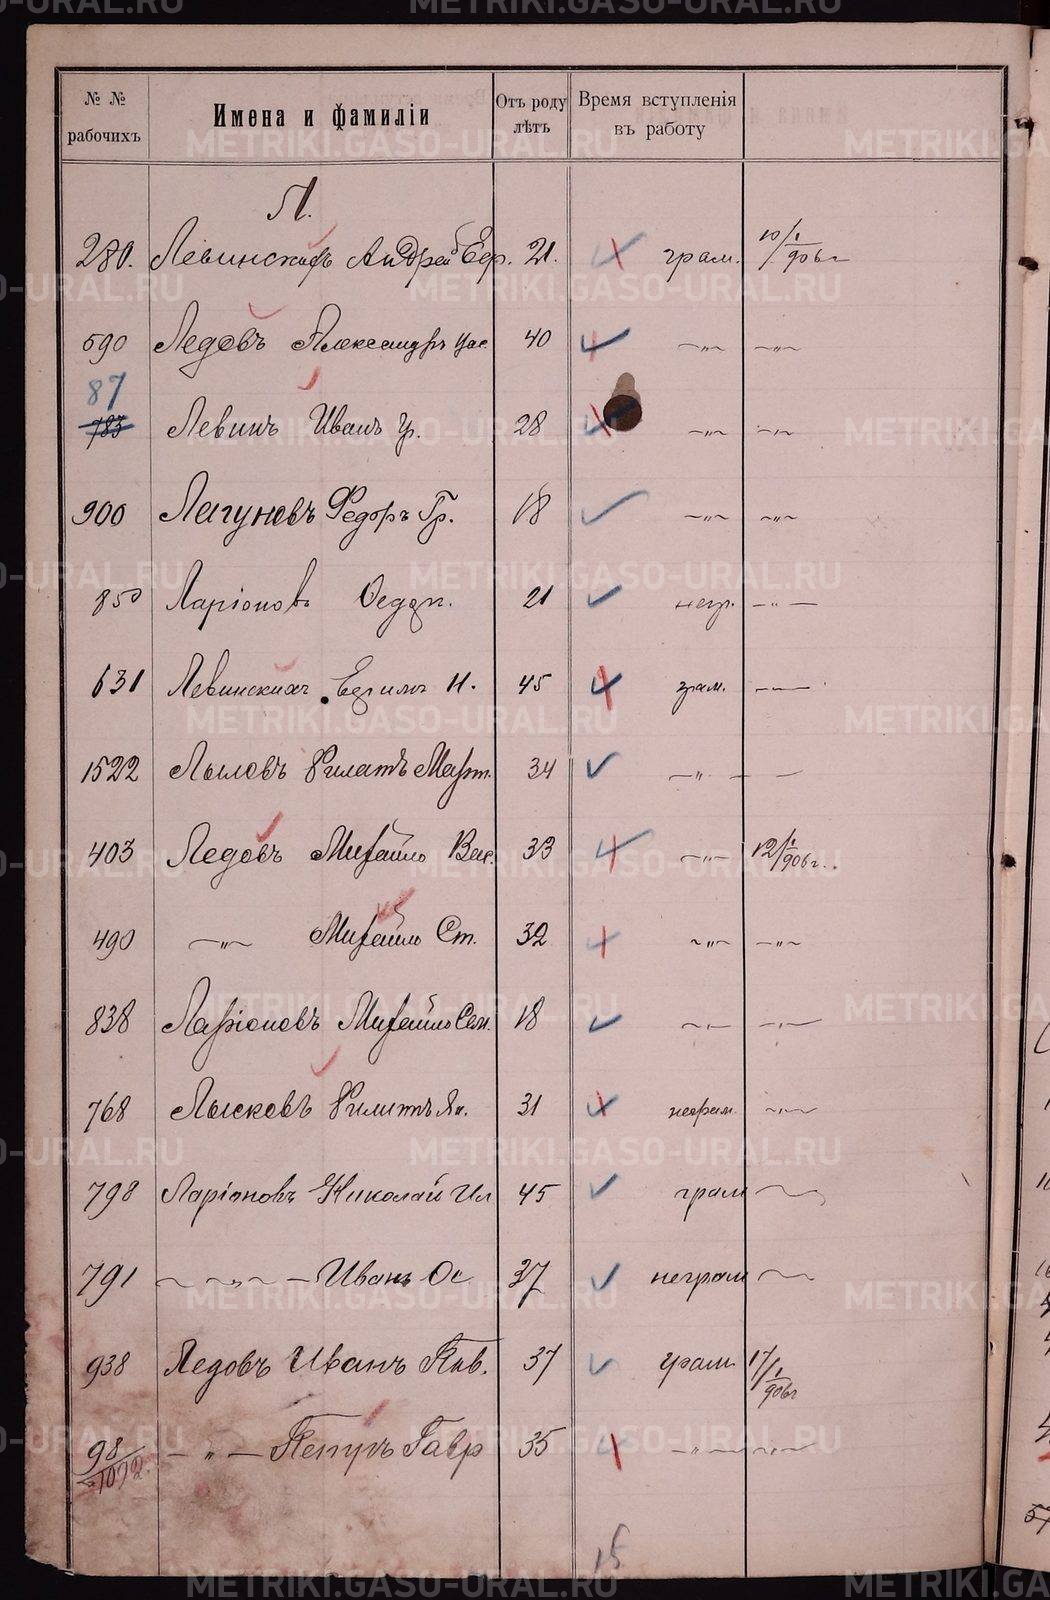 № № рабочихъ
Имена и фамиліи
Отъ роду лѣтъ
Время вступленія въ работу
Л.
280. Левинскихъ Андрей Ег. 21. грам. 10/1 906 г
590 Ледовъ Александръ 40 -„- -„-
87
783 Левинъ Иванъ Гр. 28 -„- -„-
900 Лагуновъ Федоръ Гр. 18 -„- -„-
850 Ларіоновъ 21 негр. -„-
631 Левинскихъ И. 45 грам. -„-
1522 Лыловъ Филатъ Март. 34 -„- -
403 Ледовъ Михайло Вас. 33 -„- 12/1 906 г.
490 -„- Михайло Ст. 32 -„- -„-
838 Ларіоновъ Михайло Сем. 18 -„- -„-
768 Лысковъ Як. 31 неграм. -„-
798 Ларіоновъ Николай Ил 45 грам
791 -„- Иванъ Ос 37 неграм
938 Ледовъ Иванъ Пав. 37 грам. 17/1 906 г
98/1092. -„- Гавр 35 -„- -„-
15
METRIKI.GASO-URAL.RU